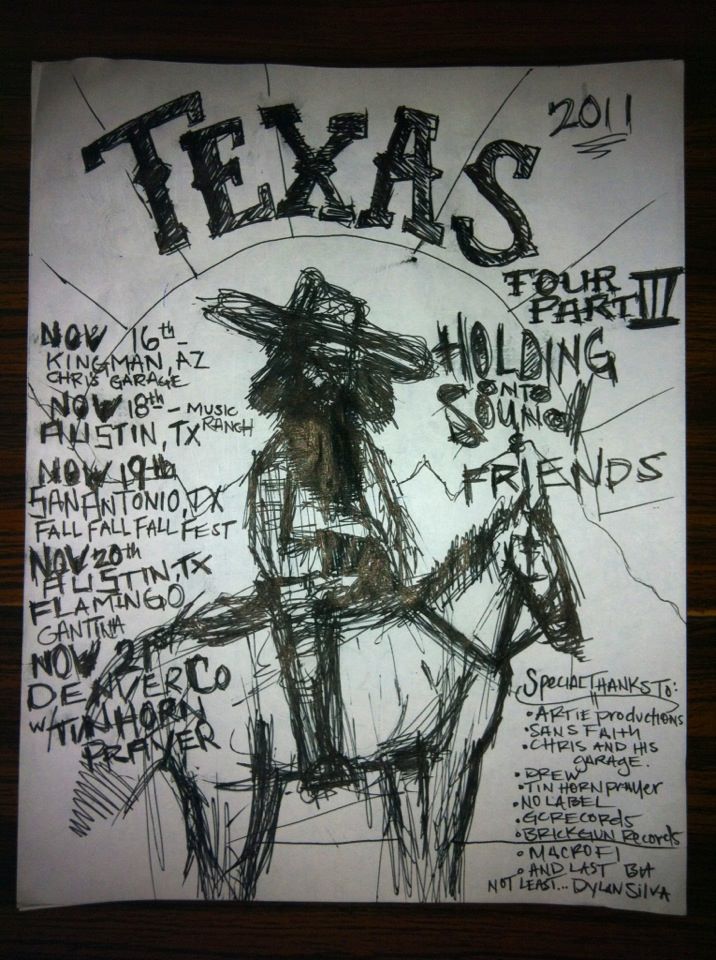 TEXAS
2011
FOUR
PART III
HOLDING
ONTO
SOUND
&
FRIENDS
NOV 16th -
KINGMAN, AZ
CHRIS GARAGE
NOV 18th - MUSIC
RANCH
AUSTIN, TX
NOV 19th
SAN ANTONIO, TX
FALL FALL FALL FEST
NOV 20th
AUSTIN, TX
FLAMINGO
CANTINA
NOV 21st
DENVER CO
W/ TIN HORN
PRAYER
SPECIAL THANKS TO:
• ARTIE productions
• SANS FAITH
• CHRIS AND HIS
GARAGE.
• DREW
• TIN HORN prayer
• NO LABEL
• GC RECORDS
• BRICKGUN Records
• M4CROFI
• AND LAST BUT
NOT LEAST... DYLAN SILVA